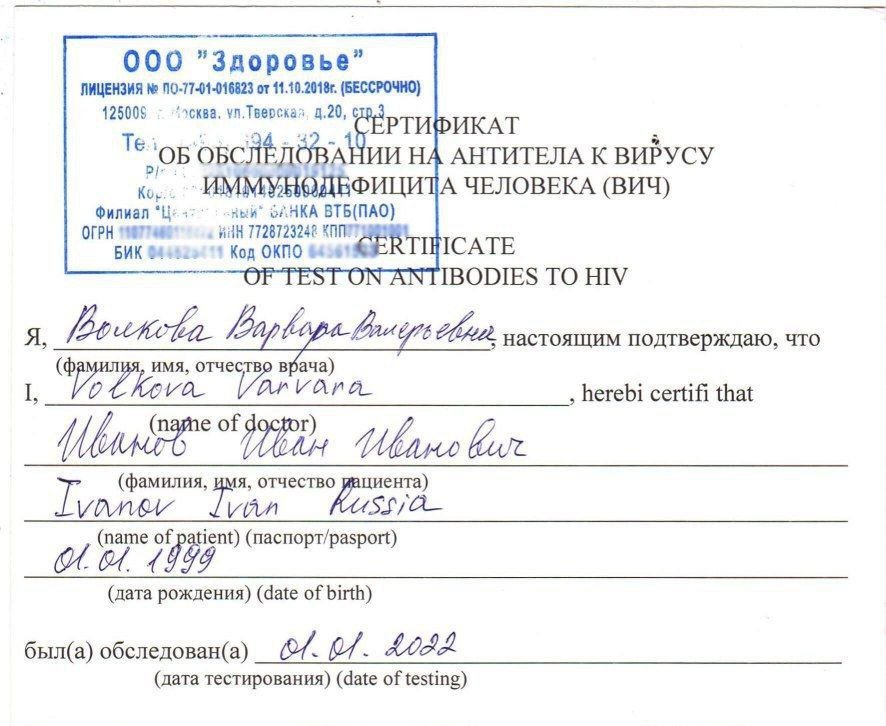 ООО "Здоровье"
ЛИЦЕНЗИЯ № ЛО-77-01-016823 от 11.10.2018г. (БЕССРОЧНО)
125009 Москва, ул.Тверская, д.20, стр.3
94-32-10
Филиал БАНКА ВТБ(ПАО)
ОГРН ИНН 7728723248 КПП
БИК Код ОКПО
СЕРТИФИКАТ
ОБ ОБСЛЕДОВАНИИ НА АНТИТЕЛА К ВИРУСУ
ИММУНОДЕФИЦИТА ЧЕЛОВЕКА (ВИЧ)
CERTIFICATE
OF TEST ON ANTIBODIES TO HIV
Я, Волкова Варвара Валерьевна, настоящим подтверждаю, что
(фамилия, имя, отчество врача)
I, Volkova Varvara, herebi certifi that
(name of doctor)
Иванов Иван Иванович
(фамилия, имя, отчество пациента)
Ivanov Ivan Russia
(name of patient) (паспорт/pasport)
01.01.1999
(дата рождения) (date of birth)
был(а) обследован(а) 01.01.2022
(дата тестирования) (date of testing)